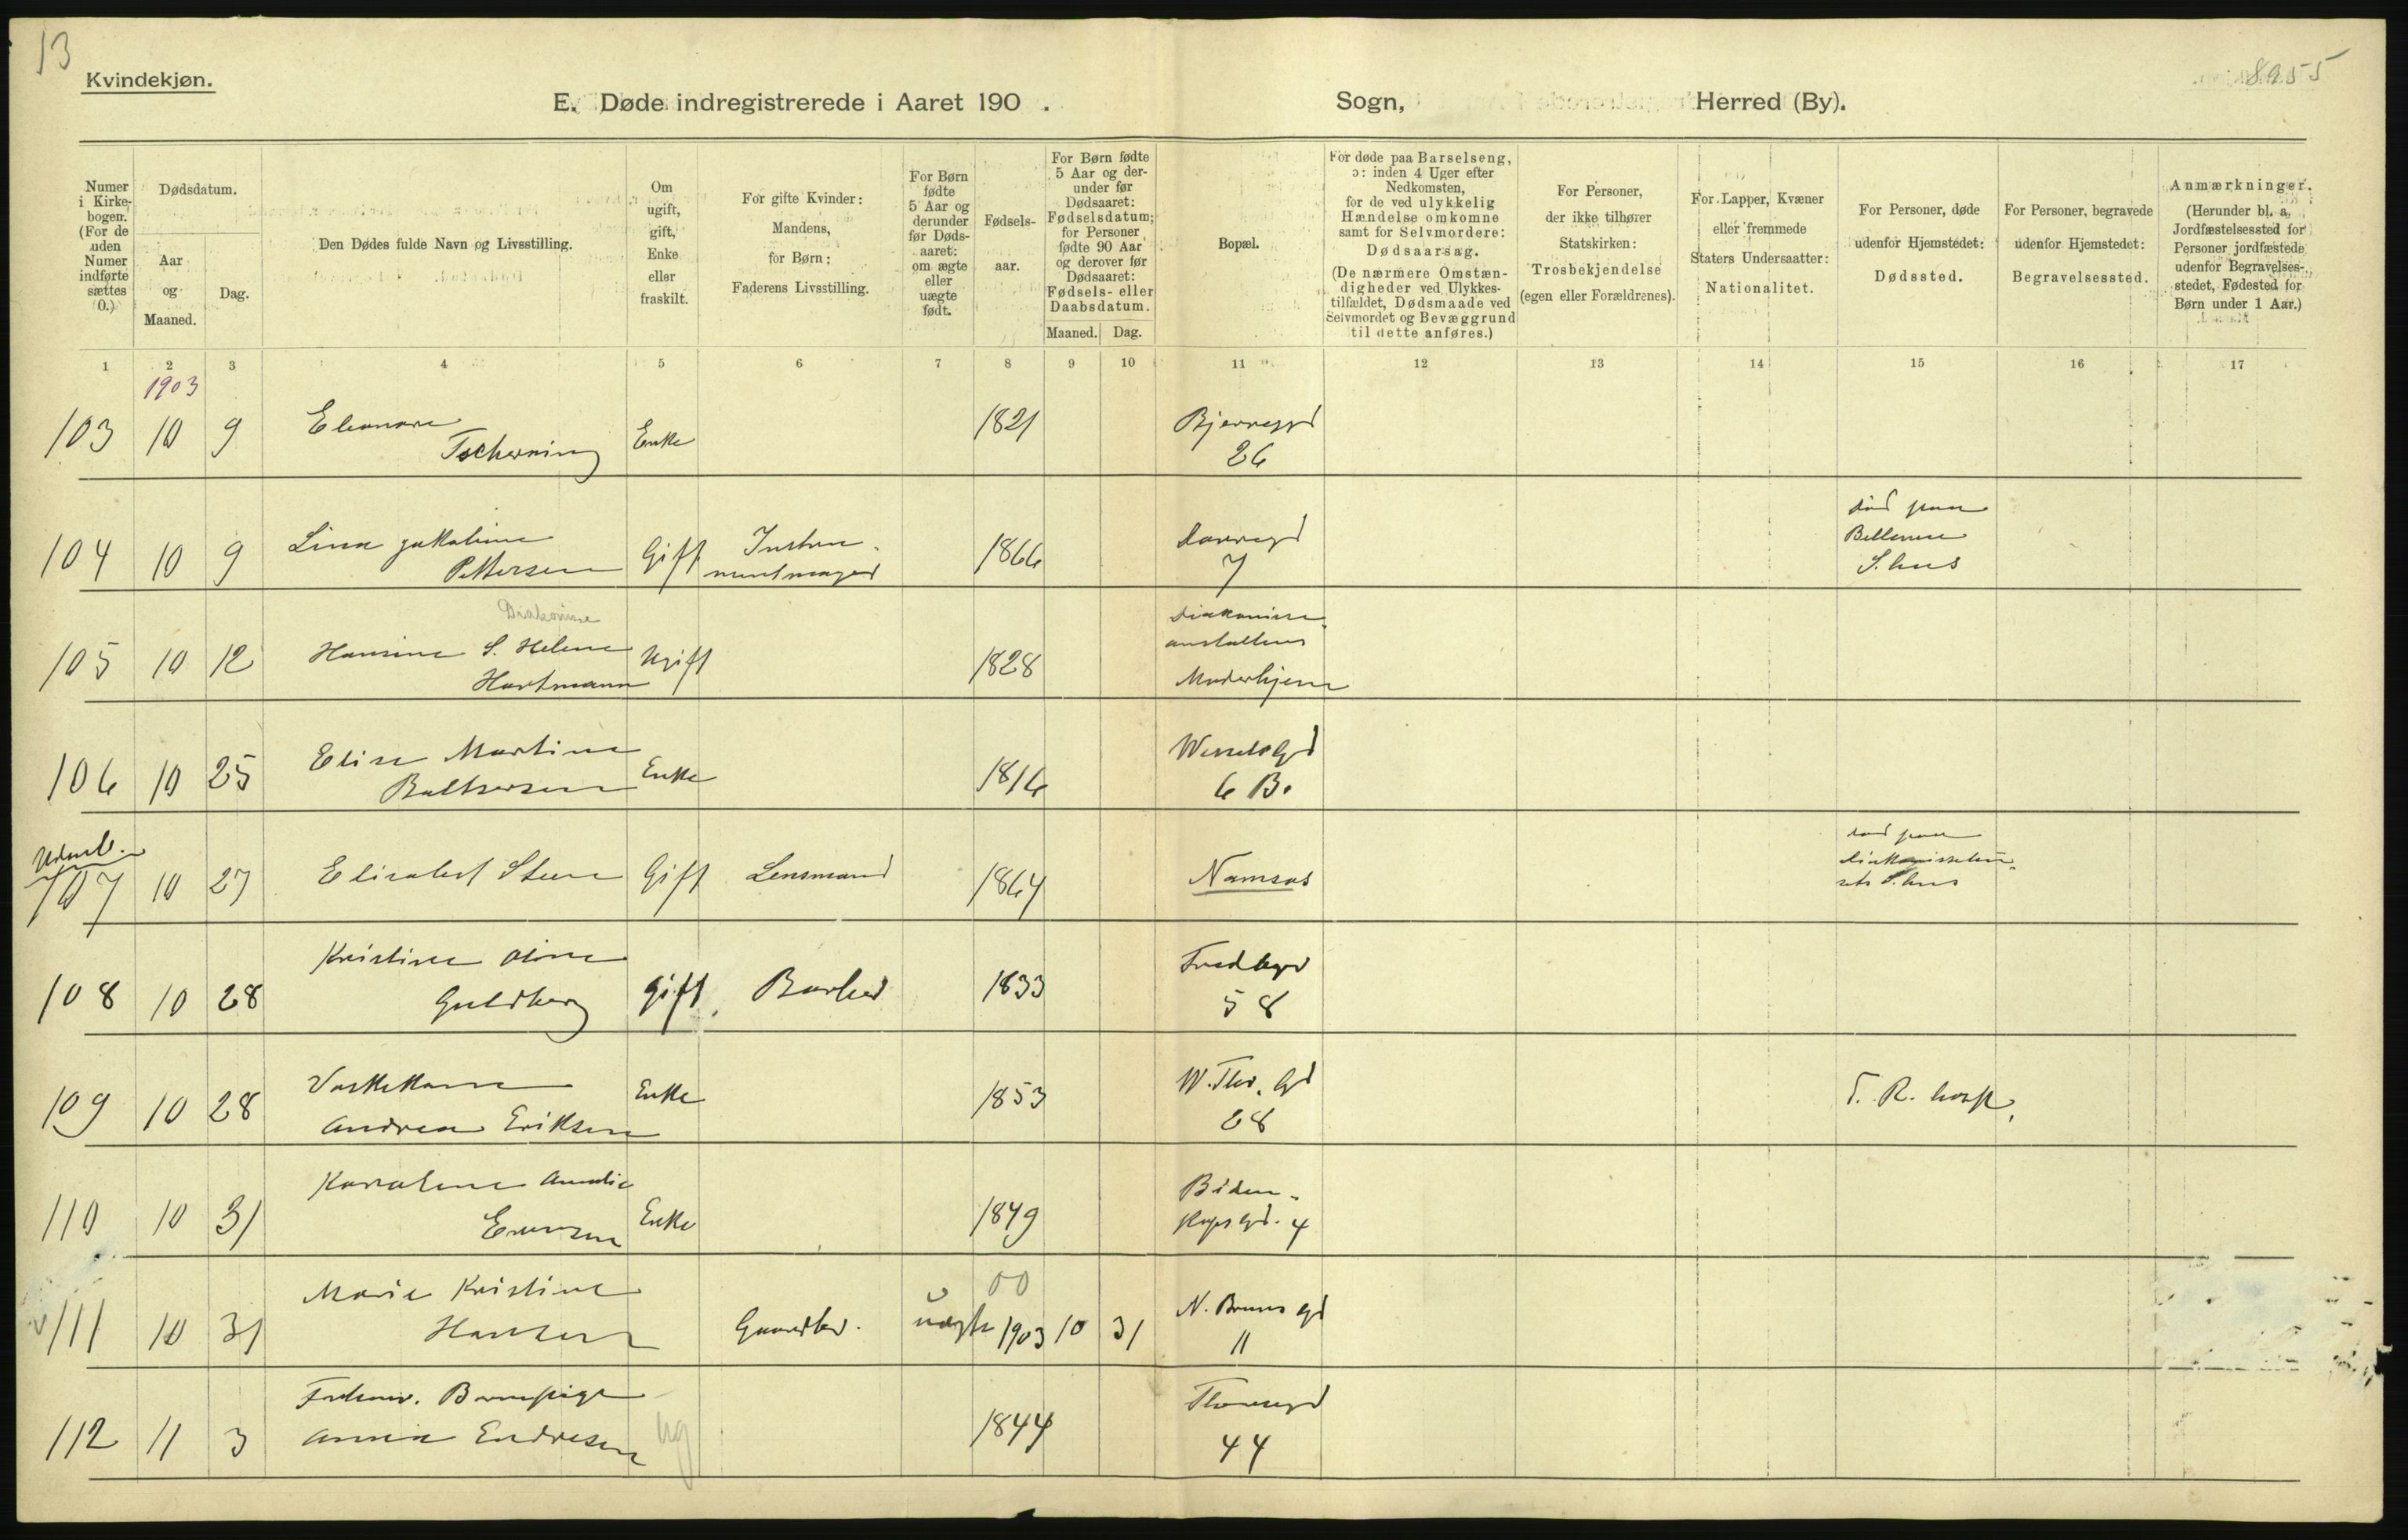 13
8955
Kvindekjøn.
E. Døde indregistrerede i Aaret 190 . Sogn, Herred (By).
Numer i Kirkebogen. (For de uden Numer indførte sættes 0.)
Dødsdatum.
Aar og Maaned.
Dag.
Den Dødes fulde Navn og Livsstilling.
Om ugift, gift, Enke eller fraskilt.
For gifte Kvinder: Mandens, for Børn: Faderens Livsstilling.
For Børn fødte 5 Aar og derunder før Dødsaaret: om ægte eller uægte født.
Fødselsaar.
For Børn fødte 5 Aar og derunder før Dødsaaret: Fødselsdatum; for Personer fødte 90 Aar og derover før Dødsaaret: Fødsels- eller Daabsdatum.
Maaned. Dag.
Bopæl.
For døde paa Barselseng, ɔ: inden 4 Uger efter Nedkomsten, for de ved ulykkelig Hændelse omkomne samt for Selvmordere: Dødsaarsag. (De nærmere Omstændigheder ved Ulykkestilfældet, Dødsmaade ved Selvmordet og Bevæggrund til dette anføres.)
For Personer, der ikke tilhører Statskirken: Trosbekjendelse (egen eller Forældrenes).
For Lapper, Kvæner eller fremmede Staters Undersaatter: Nationalitet.
For Personer, døde udenfor Hjemstedet: Dødssted.
For Personer, begravede udenfor Hjemstedet: Begravelsessted.
Anmærkninger. (Herunder bl. a. Jordfæstelsessted for Personer jordfæstede udenfor Begravelsesstedet, Fødested for Børn under 1 Aar.)
1 2 3 4 5 6 7 8 9 10 11 12 13 14 15 16 17
1903
103 10 9 Eleonore Tscherning Enke 1821 Bjerregd 26
104 10 9 Lina Jakobine Pettersen Gift Instrumentmager 1866 Darregd 7 død paa Bellevue S.hus
Diakonisse
105 10 12 Hansine S. Helene Hartmann Ugift 1828 Diakonisseanstaltens Moderhjem
106 10 25 Elise Martine Baltzersen Enke 1816 Wesselsgd 6 B.
Udenb.
107 10 27 Elisabet Steen Gift Lensmand 1864 Namsos død paa S.hus
108 10 28 Kristine Oline Guldberg Gift. 1833 58
109 10 28 Vaskekone Andrea Eriksen Enke 1853 W. Thr. Gd 28 R. hosp.
110 10 31 Karoline Amalie Enke 1849 4
00
v 111 10 31 Marie Kristine Hansen Gaardbr. uægte 1903 10 31 N. Bruns gd 11
112 11 3 Forhenv. Barnepige Anna Endresen ug 1844 Thoresgd 44